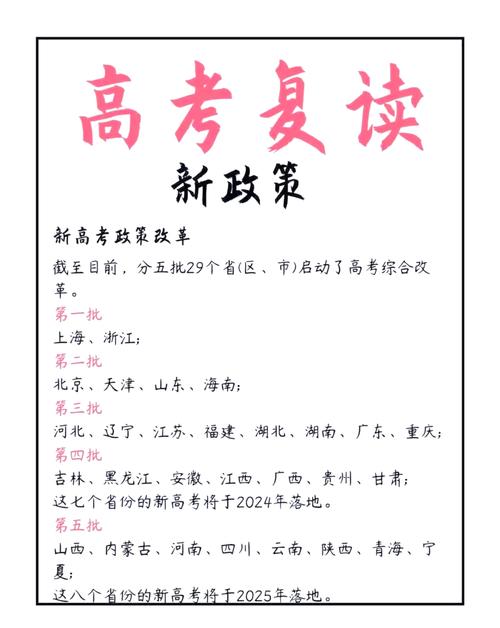 高考复读
新政策
新高考政策改革
截至目前，分五批29个省(区、市)启动了高考综合改
革。
第一批
上海、浙江;
第二批
北京、天津、山东、海南;
第三批
河北、辽宁、江苏、福建、湖北、湖南、广东、重庆;
第四批
吉林、黑龙江、安徽、江西、广西、贵州、甘肃;
这七个省份的新高考将于2024年落地。
第五批
山西、内蒙古、河南、四川、云南、陕西、青海、宁
夏;
这八个省份的新高考将于2025年落地。